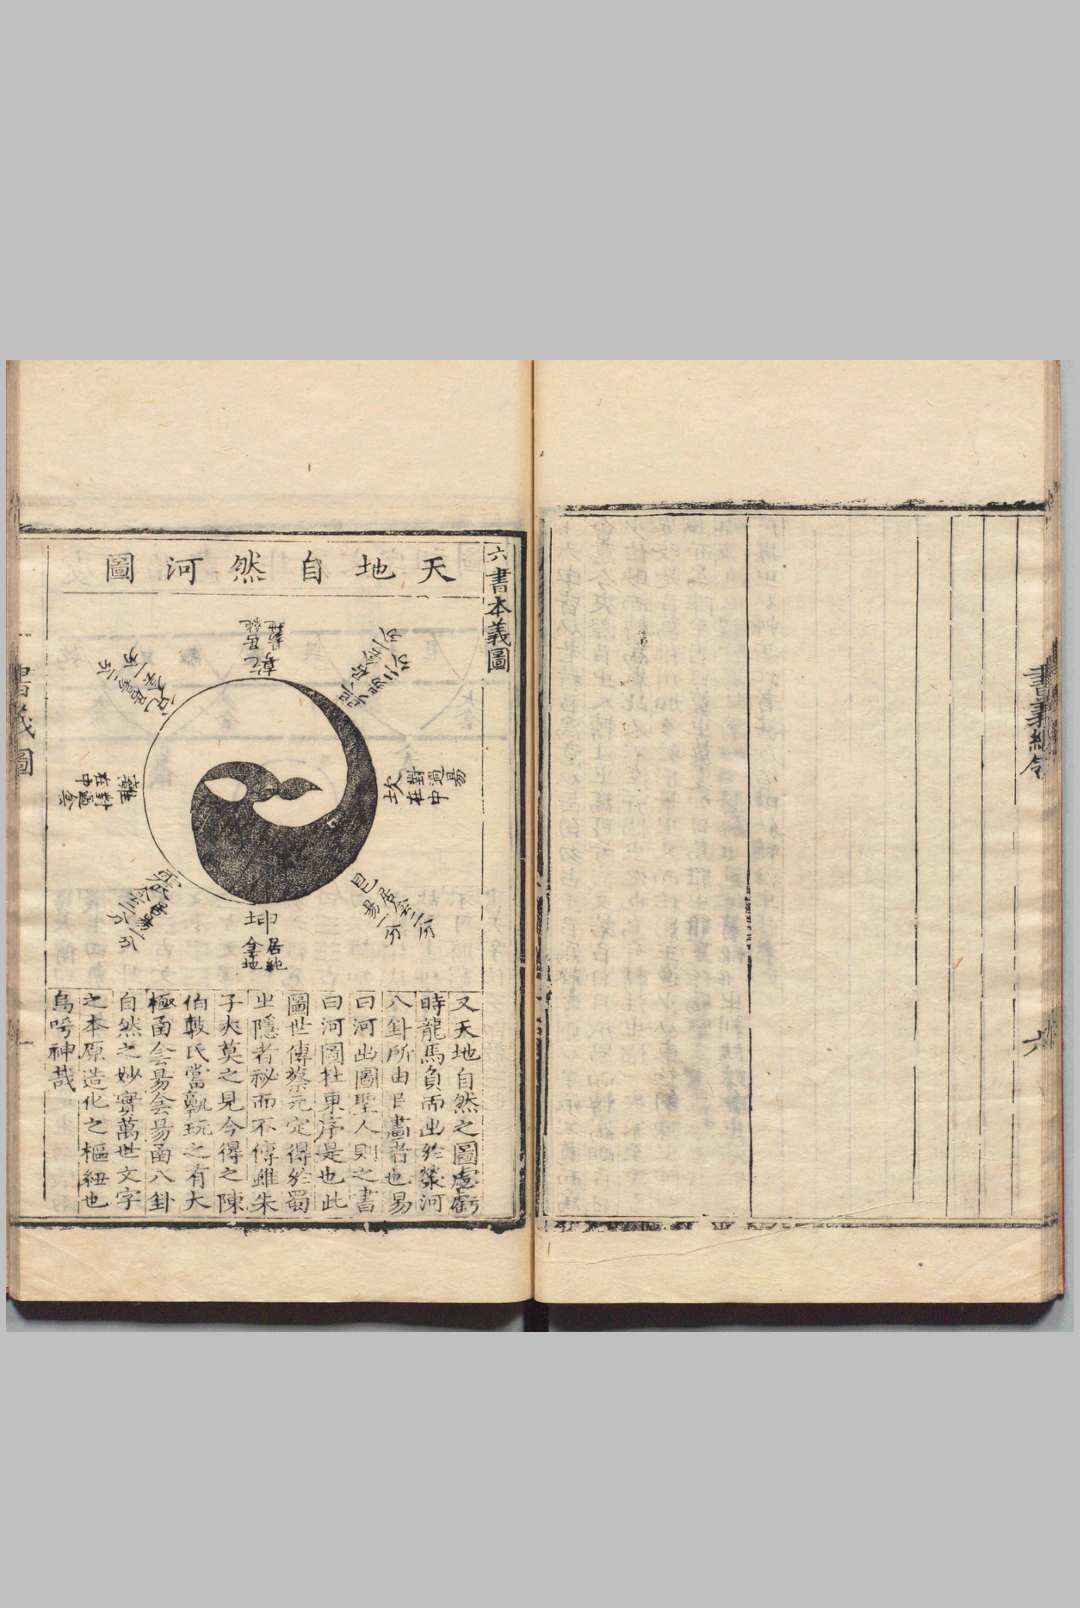 六書本義圖
天地自然河圖
乾
兌
離
震
坤
坎
對過
昜
在中
居純
会地
又天地自然之圖虙戲
時龍馬負而出於滎河
八卦所由㠯畵者也易
曰河出圖聖人則之書
曰河圖在東序是也此
圖世傳蔡元定得於蜀
之隱者祕而不傳雖朱
子亦莫之見今得之陳
伯敷氏嘗翫玩之有大
極函会昜会昜函八卦
自然之妙實萬世文字
之本原造化之樞紐也
烏呼神哉
書義圖
六